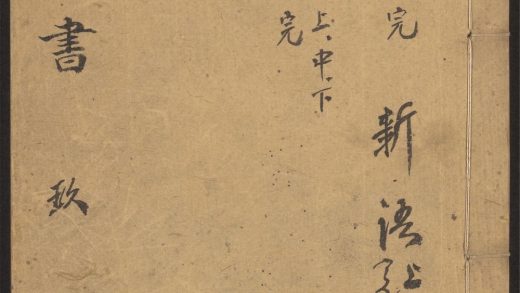 完
新語
上、中、下
完
書 玖